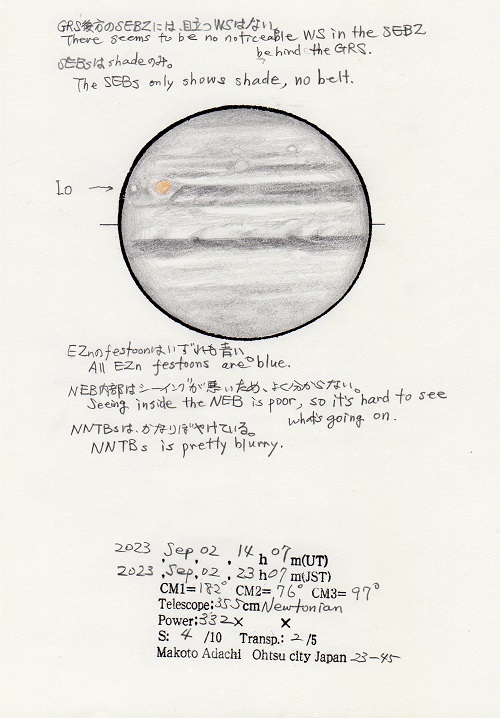 GRS後方のSEBZには、目立つWSはない。
There seems to be no noticeable WS in the SEBZ
behind the GRS.
SEBsはshadeのみ。
The SEBs only shows shade, no belt.
Io →
EZnのfestoonはいずれも青い。
All EZn festoons are blue.
NEB内部はシーイングが悪いため、よく分からない。
Seeing inside the NEB is poor, so it's hard to see
what's going on.
NNTBsは、かなりぼやけている。
NNTBs is pretty blurry.
2023 , Sep, 02 , 14 h 07 m(UT)
2023 , Sep, 02 , 23 h 07 m(JST)
CM1= 182° CM2= 76° CM3= 97°
Telescope; 355 cm Newtonian
Power; 332× ×
S: 4 /10 Transp.: 2 /5
Makoto Adachi Ohtsu city Japan 23-45